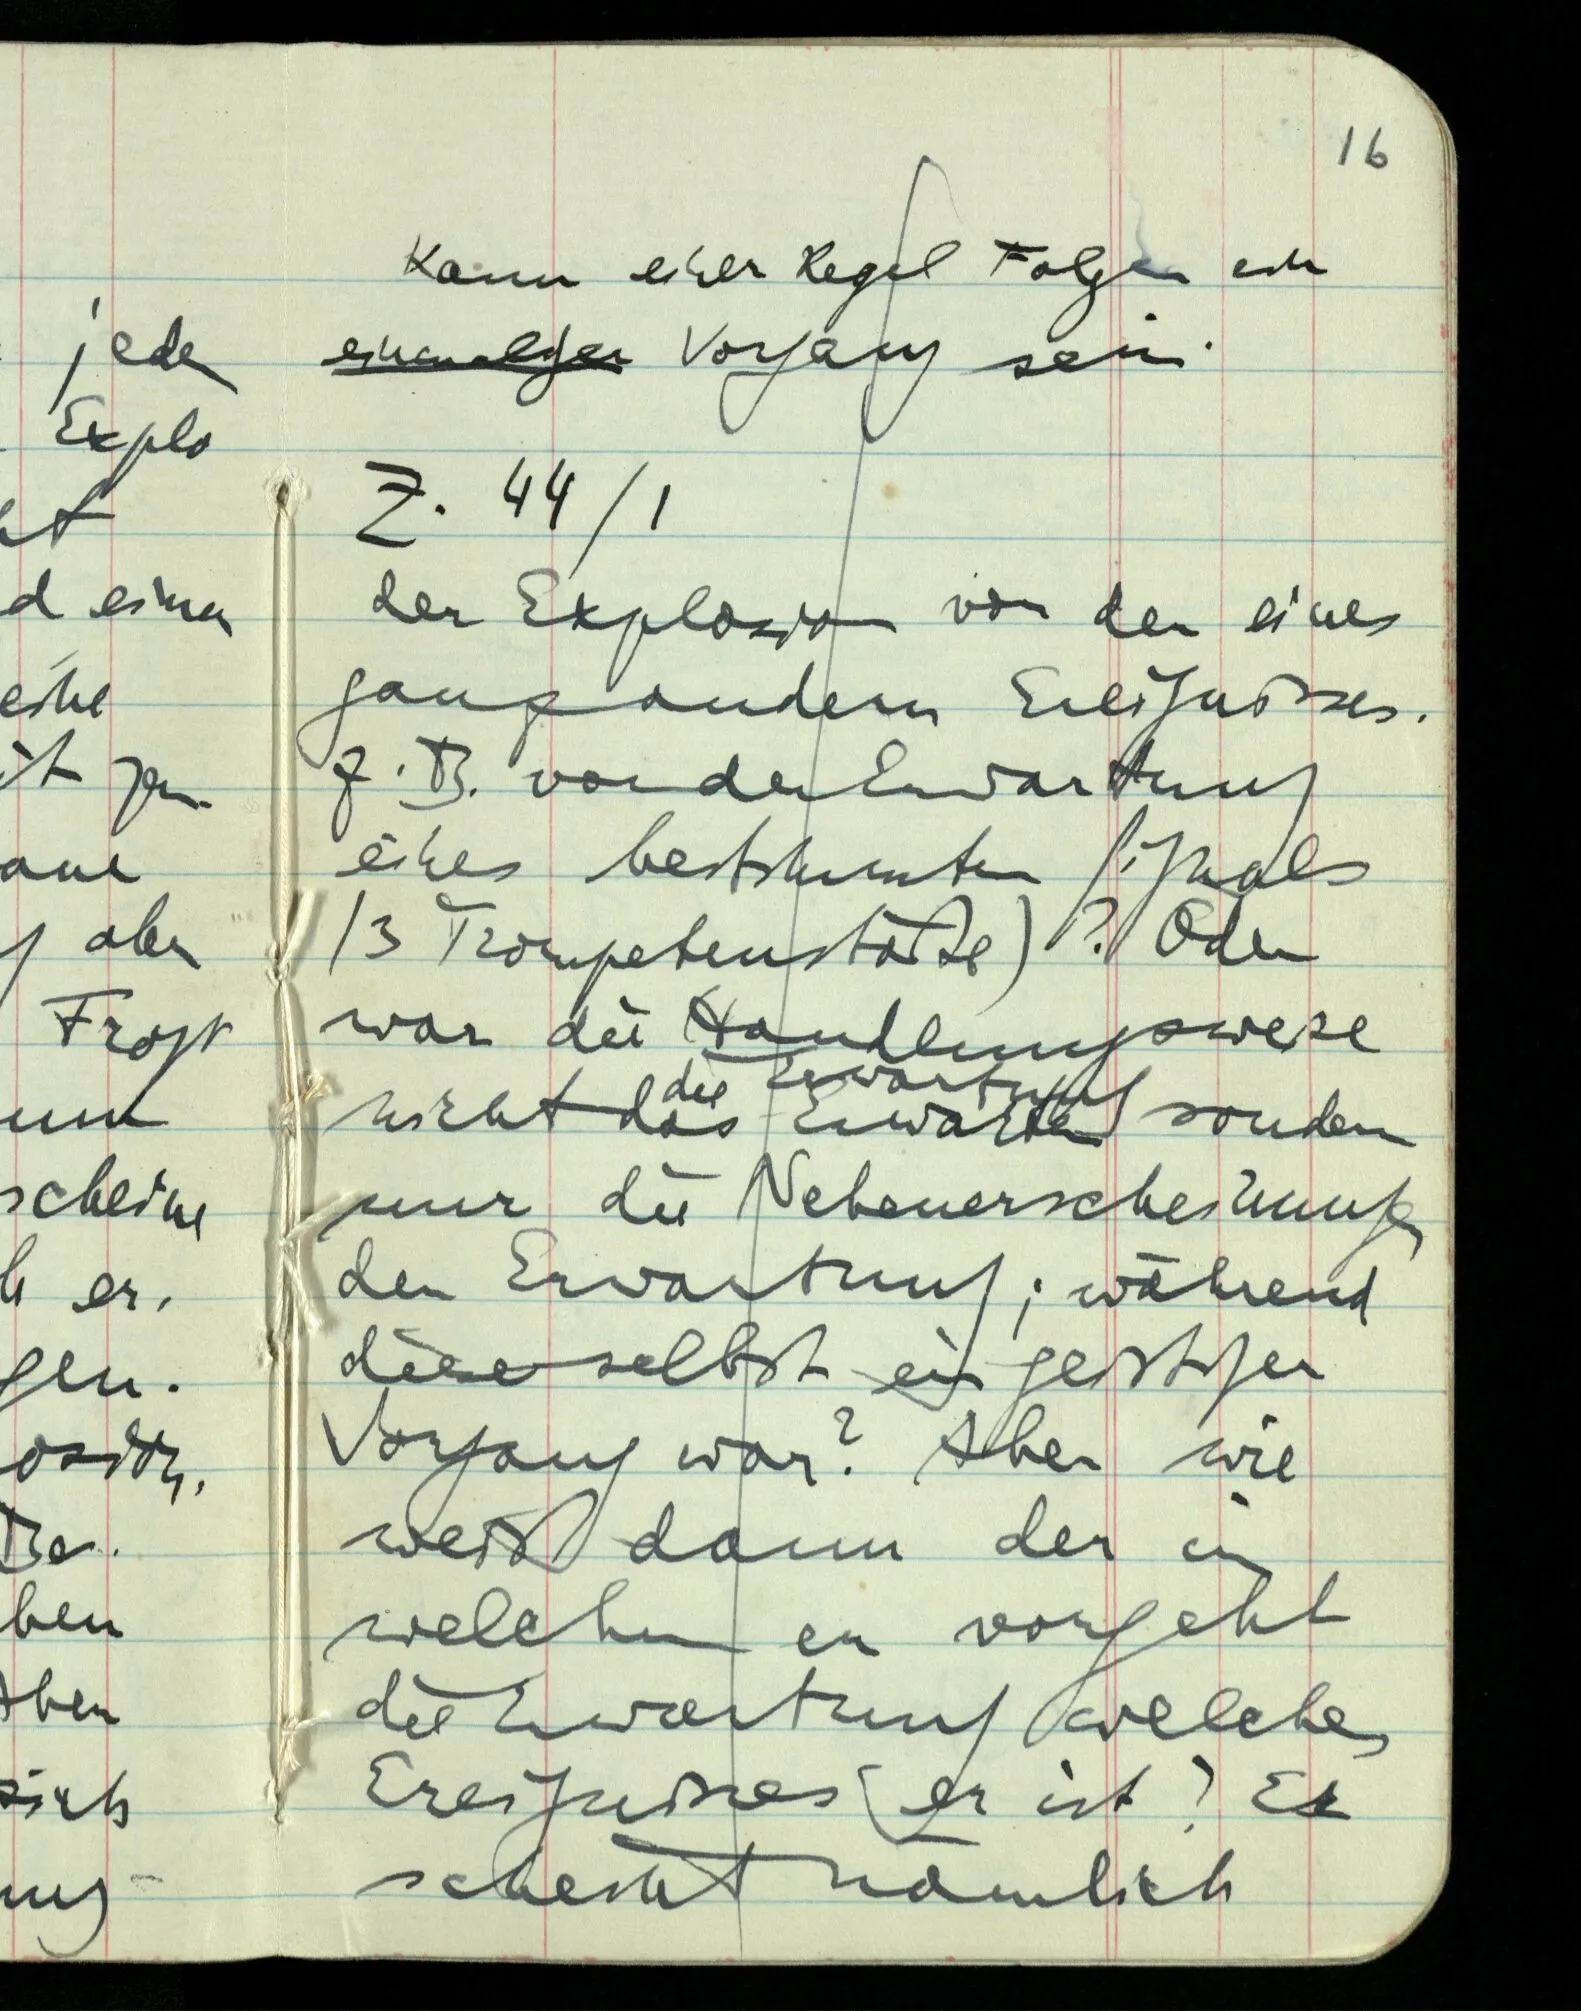 jede
Explo
d einer
eine
aber
Frage
scheine
er.
gen.
ben
Aber
sich
16
Kann einer Regel Folgen ein
einmaliger Vorgang sein.
Z. 44/1
der Explosion von der eines
ganz andern Ereignisses.
z.B. von der Erwartung
eines bestimmten Signals
(3 Trompetenstöße)? Oder
war die Handlungsweise
die Erwartung
nicht das Erwarten sondern
nur die Nebenerscheinung
der Erwartung; während
diese selbst ein geistiger
Vorgang war? Aber wie
weiß dann der in
welchem er vorgeht
die Erwartung welches
Ereignisses er ist? Er
scheint nämlich